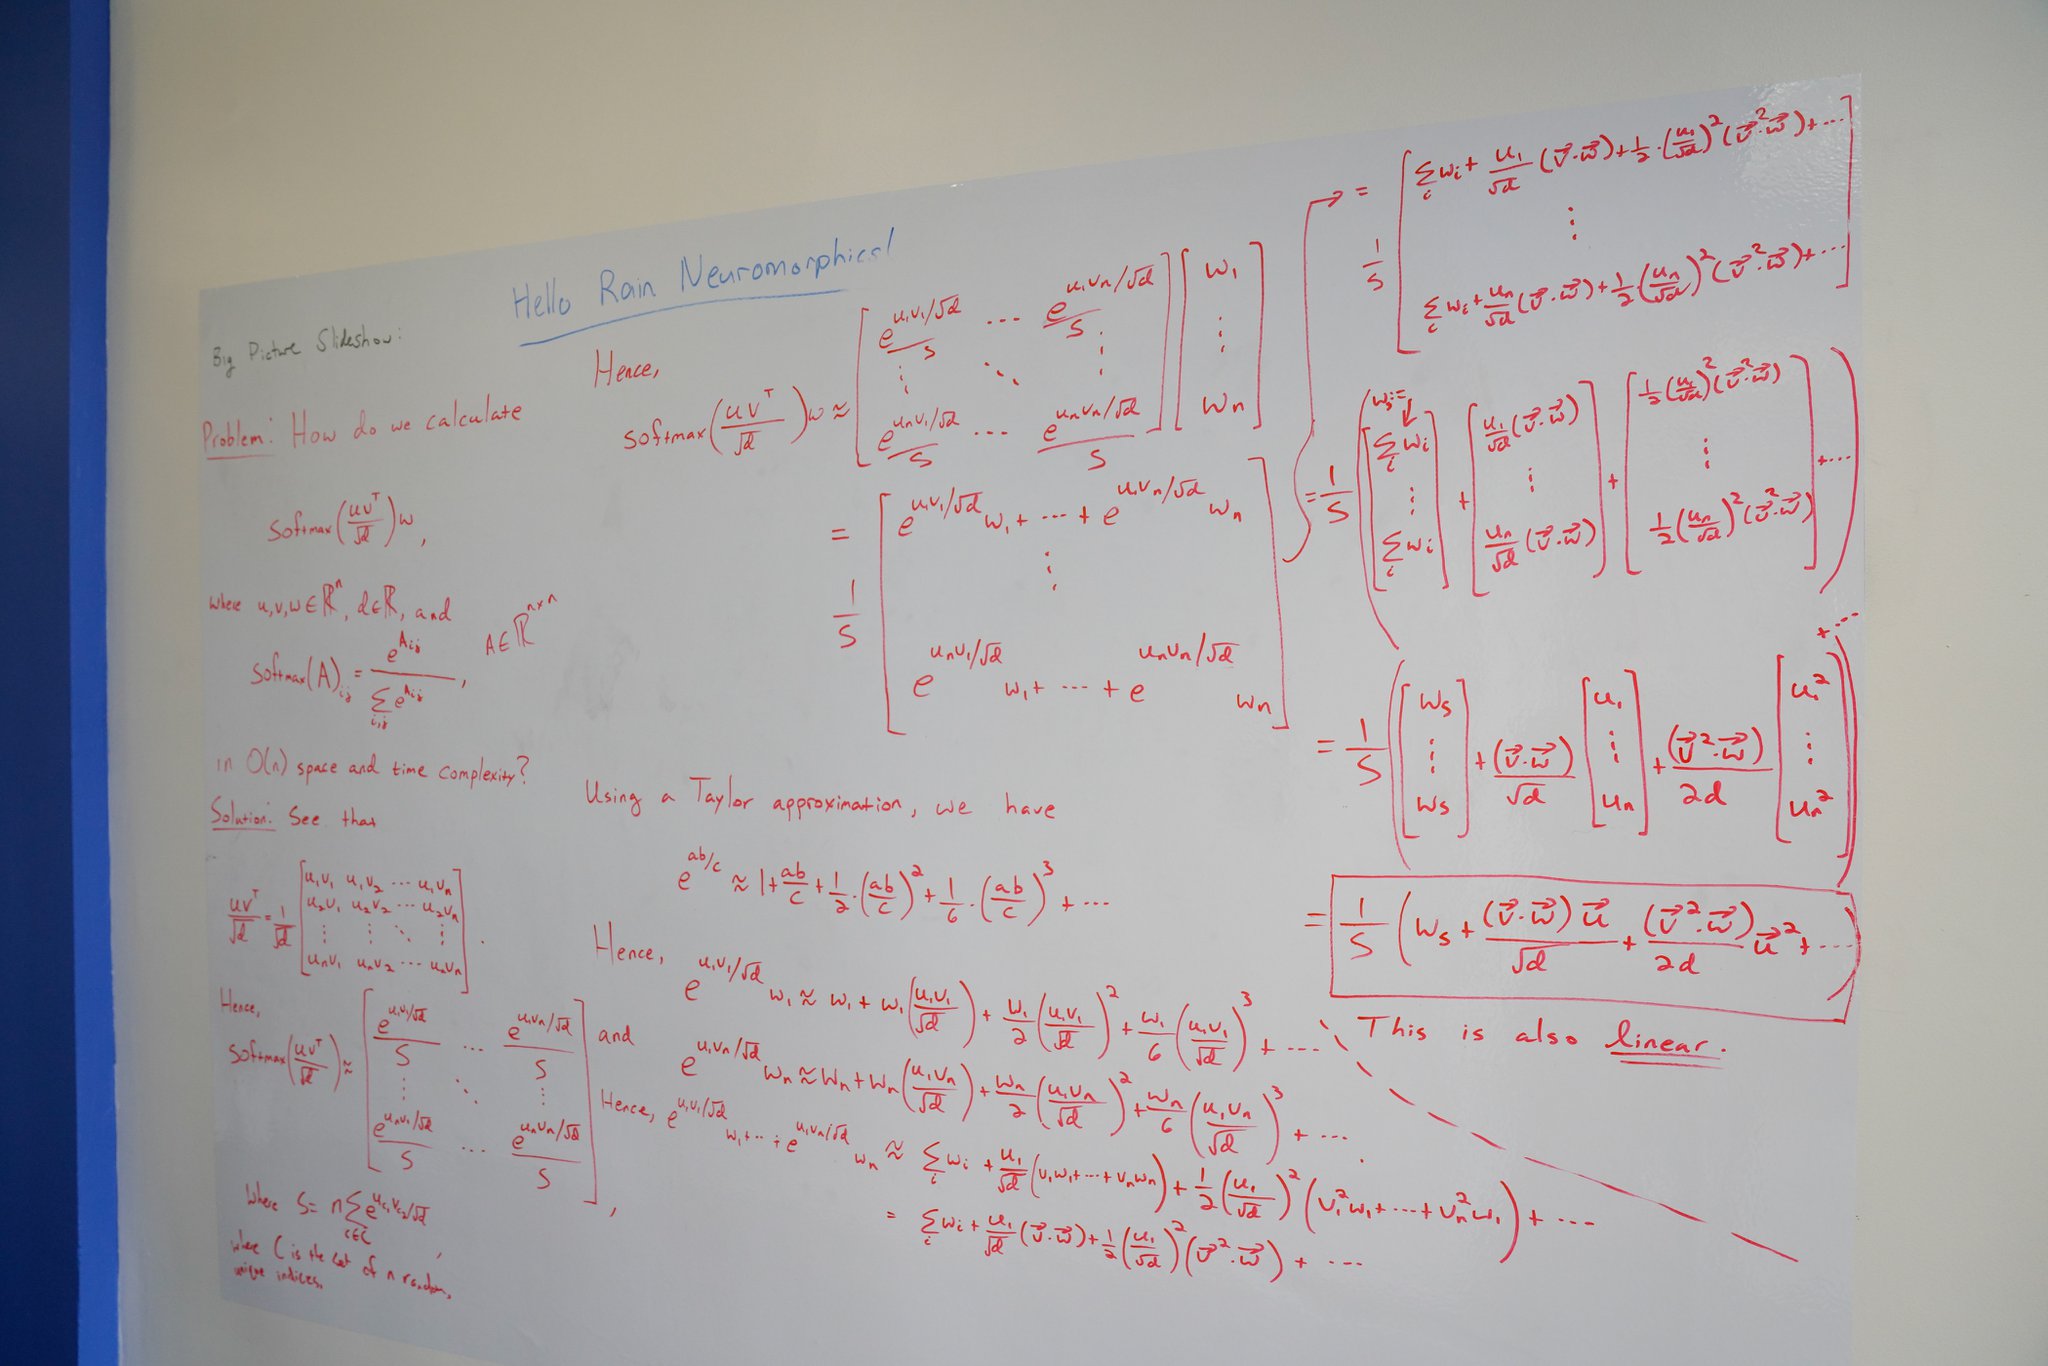 Hello Rain Neuromorphics!
Big Picture Slideshow:
Problem: How do we calculate
softmax(uvᵀ/√d)w,
where u,v,w∈ℝⁿ, d∈ℝ, and
softmax(A)ᵢⱼ = e^(Aᵢⱼ) / ∑ᵢ,ⱼ e^(Aᵢⱼ), A∈ℝⁿˣⁿ
in O(n) space and time complexity?
Solution: See that
uvᵀ/√d = 1/√d [u₁v₁ u₁v₂ ⋯ u₁vₙ
u₂v₁ u₂v₂ ⋯ u₂vₙ
⋮ ⋮ ⋱ ⋮
uₙv₁ uₙv₂ ⋯ uₙvₙ].
Hence,
softmax(uvᵀ/√d) ≈ [e^(u₁v₁/√d)/S ⋯ e^(u₁vₙ/√d)/S
⋮ ⋱ ⋮
e^(uₙv₁/√d)/S ⋯ e^(uₙvₙ/√d)/S],
Where S = n∑_(c∈C) e^(u_c₁v_c₂/√d),
where C is the set of n random,
unique indices.
Hence,
softmax(uvᵀ/√d)w ≈ [e^(u₁v₁/√d)/S ⋯ e^(u₁vₙ/√d)/S
⋮ ⋱ ⋮
e^(uₙv₁/√d)/S ⋯ e^(uₙvₙ/√d)/S] [w₁
⋮
wₙ]
= 1/S [e^(u₁v₁/√d) w₁ + ⋯ + e^(u₁vₙ/√d) wₙ
⋮
e^(uₙv₁/√d) w₁ + ⋯ + e^(uₙvₙ/√d) wₙ]
Using a Taylor approximation, we have
e^(ab/c) ≈ 1 + ab/c + 1/2·(ab/c)² + 1/6·(ab/c)³ + ⋯
Hence,
e^(u₁v₁/√d) w₁ ≈ w₁ + w₁(u₁v₁/√d) + w₁/2 (u₁v₁/√d)² + w₁/6 (u₁v₁/√d)³ + ⋯
and
e^(u₁vₙ/√d) wₙ ≈ wₙ + wₙ(u₁vₙ/√d) + wₙ/2 (u₁vₙ/√d)² + wₙ/6 (u₁vₙ/√d)³ + ⋯.
Hence, e^(u₁v₁/√d) w₁ + ⋯ + e^(u₁vₙ/√d) wₙ ≈ ∑ᵢ wᵢ + u₁/√d (v₁w₁ + ⋯ + vₙwₙ) + 1/2 (u₁/√d)² (v₁²w₁ + ⋯ + vₙ²w₁) + ⋯
= ∑ᵢ wᵢ + u₁/√d (v⃗·w⃗) + 1/2 (u₁/√d)² (v⃗²·w⃗) + ⋯
= 1/S [∑ᵢ wᵢ + u₁/√d (v⃗·w⃗) + 1/2·(u₁/√d)² (v⃗²·w⃗) + ⋯
⋮
∑ᵢ wᵢ + uₙ/√d (v⃗·w⃗) + 1/2·(uₙ/√d)² (v⃗²·w⃗) + ⋯]
wₛ:=
= 1/S ([∑ᵢ wᵢ
⋮
∑ᵢ wᵢ] + [u₁/√d (v⃗·w⃗)
⋮
uₙ/√d (v⃗·w⃗)] + [1/2 (u₁/√d)² (v⃗²·w⃗)
⋮
1/2 (uₙ/√d)² (v⃗²·w⃗)] + ⋯)
= 1/S ([wₛ
⋮
wₛ] + (v⃗·w⃗)/√d [u₁
⋮
uₙ] + (v⃗²·w⃗)/2d [u₁²
⋮
uₙ²] + ⋯)
= 1/S (wₛ + (v⃗·w⃗)u⃗/√d + (v⃗²·w⃗)/2d u⃗² + ⋯)
This is also linear.